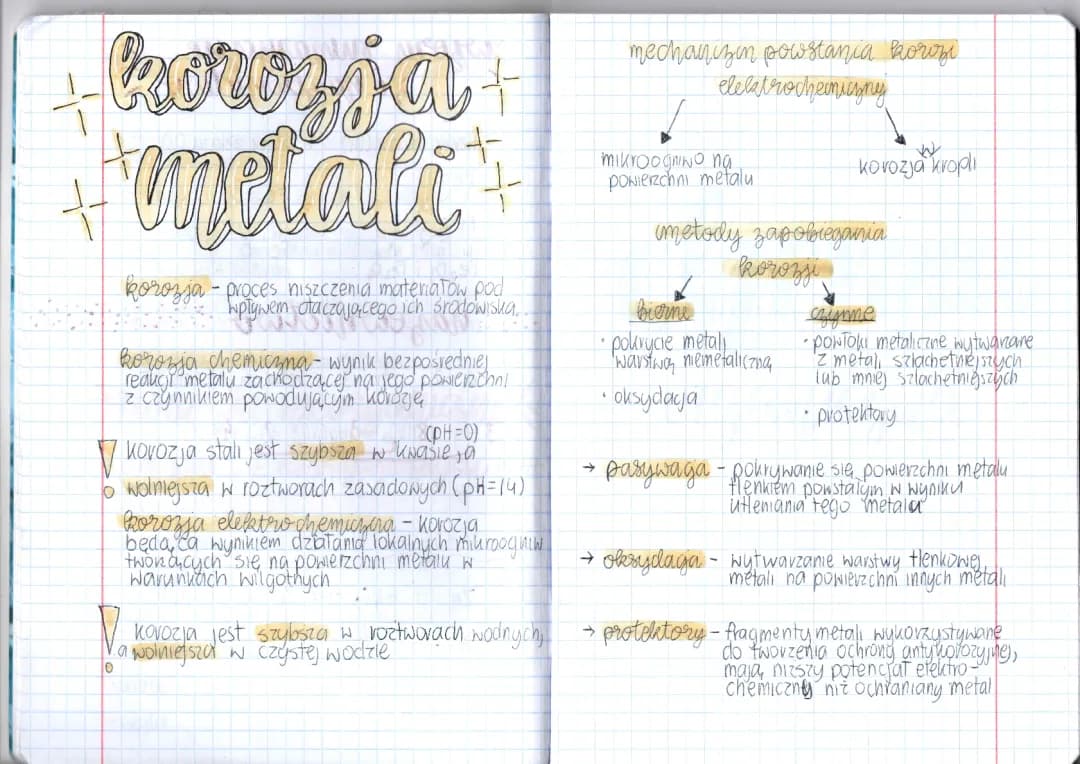 korozja
metali
korozja - proces niszczenia materiałów pod
wpływem otaczającego ich środowiska
korozja chemiczna - wynik bezpośredniej
reakcji metalu zachodzącej na jego powierzchni
z czynnikiem powodującym korozję
(pH=0)
! korozja stali jest szybsza w kwasie, a
wolniejsza w roztworach zasadowych (pH=14)
korozja elektrochemiczna - korozja
będąca wynikiem działania lokalnych mikroogniw
tworzących się na powierzchni metalu w
warunkach wilgotnych
! korozja jest szybsza w roztworach wodnych,
a wolniejsza w czystej wodzie
mechanizm powstania korozi
elektrochemicznej
mikroogniwo na
powierzchni metalu
korozja kropli
metody zapobiegania
korozji
bierne
• pokrycie metali
warstwą niemetaliczną
• oksydacja
czynne
• powłoki metaliczne wytwarzane
z metali szlachetniejszych
lub mniej szlachetniejszych
• protektory
→ pasywacja - pokrywanie się powierzchni metalu
tlenkiem powstałym w wyniku
utleniania tego metalu
→ oksydacja - wytwarzanie warstwy tlenkowej
metali na powierzchni innych metali
→ protektory - fragmenty metali wykorzystywane
do tworzenia ochrony antykorozyjnej,
mają niższy potencjał elektro-
chemiczny niż ochraniany metal